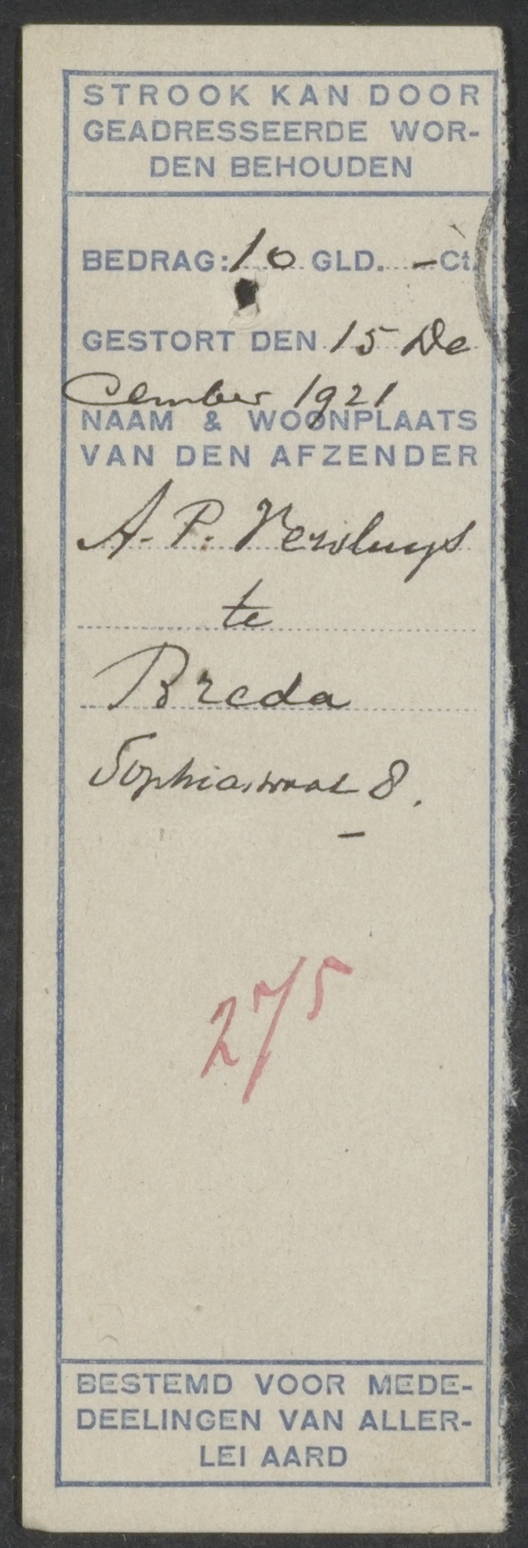 STROOK KAN DOOR
GEADRESSEERDE WOR-
DEN BEHOUDEN
BEDRAG: 10 GLD. - Ct.
GESTORT DEN 15 De
Cember 1921
NAAM & WOONPLAATS
VAN DEN AFZENDER
A. P. Versluys
te
Breda
Sophiastraat 8.
275
BESTEMD VOOR MEDE-
DEELINGEN VAN ALLER-
LEI AARD